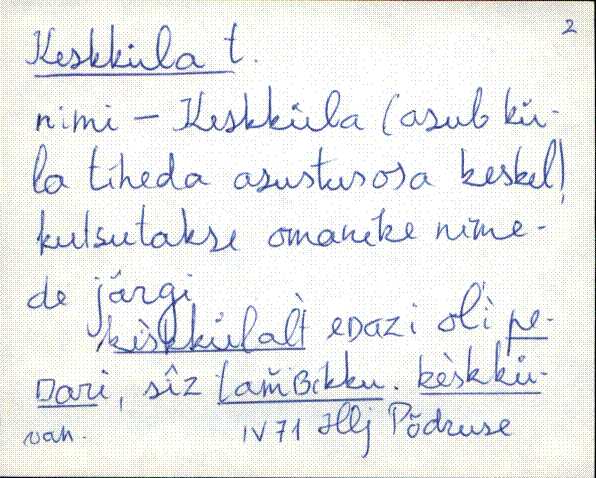 2
Keskküla t.
nimi – Keskküla (asub kü-
la tiheda asustusosa keskel)
kutsutakse omanike nime-
de järgi
kèskkülalt̀ eᴅazi oli pe-
ᴅari, sîz lam̆ʙikku. kèskkü-
van. IV 71 Hlj Põdruse